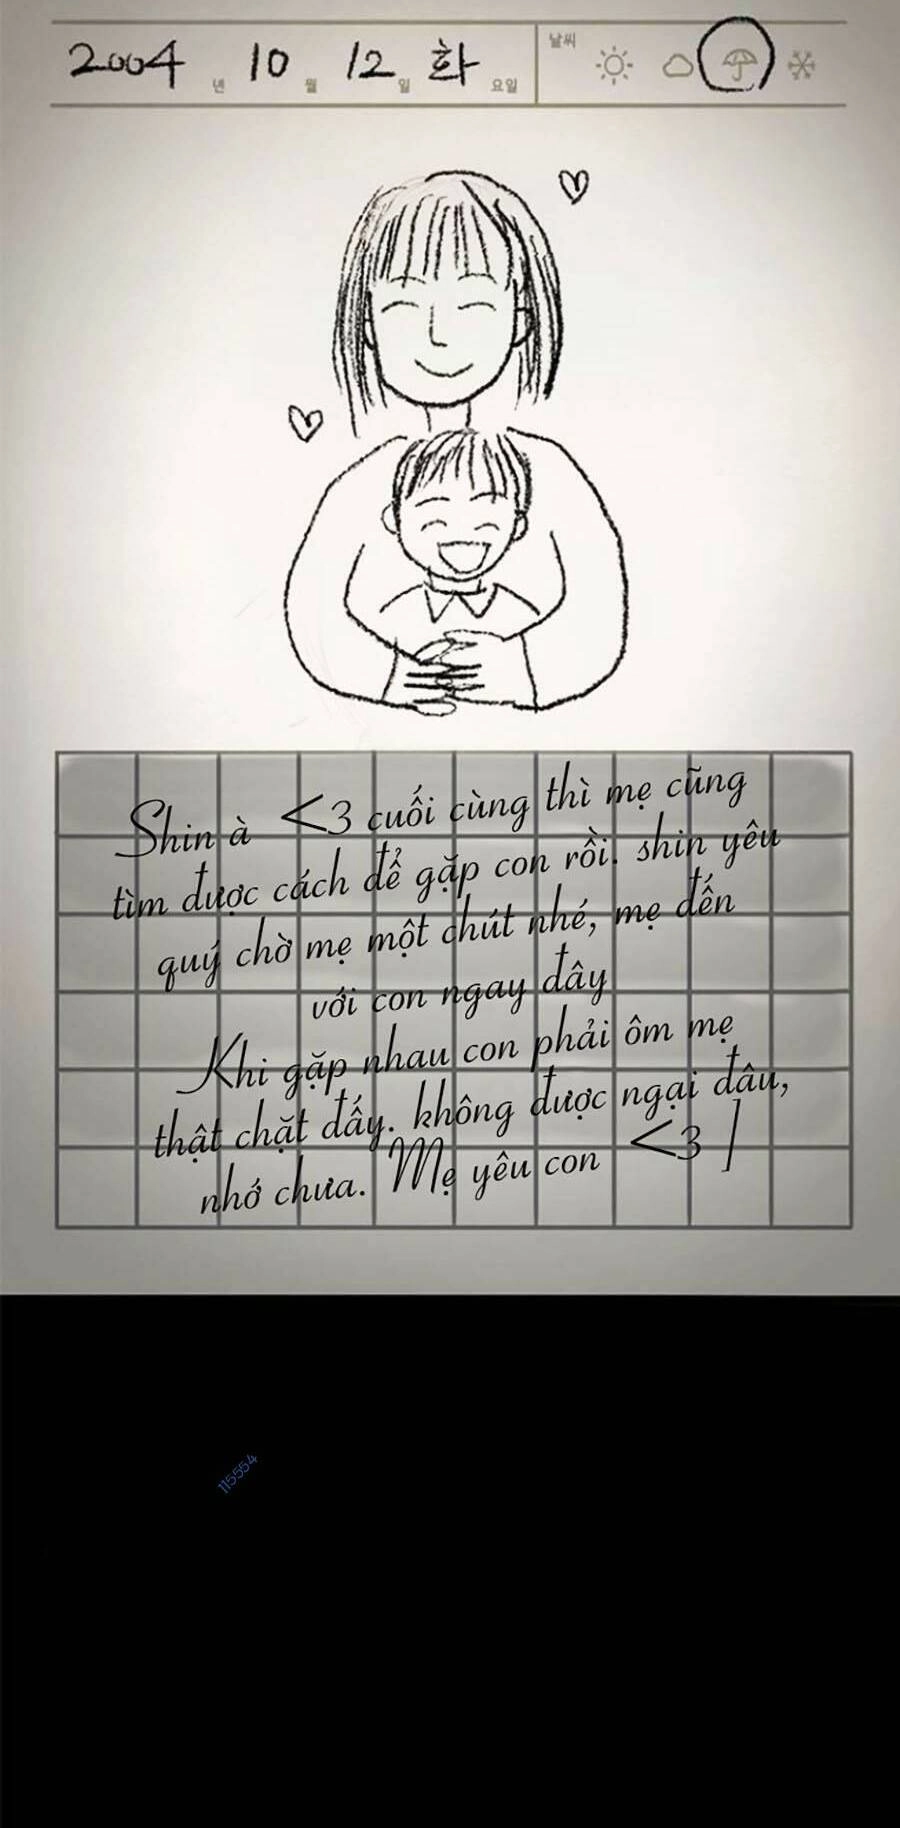 2004 년 10 월 12 일 화 요일 날씨
Shin à <3 cuối cùng thì mẹ cũng
tìm được cách để gặp con rồi. shin yêu
quý chờ mẹ một chút nhé, mẹ đến
với con ngay đây
Khi gặp nhau con phải ôm mẹ
thật chặt đấy. không được ngại đâu,
nhớ chưa. Mẹ yêu con <3
115554